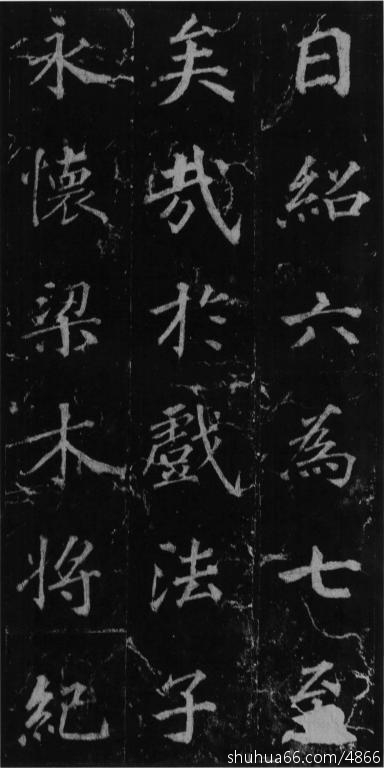 日紹六為七至
矣哉於戲法子
永懷梁木將紀
shuhua66.com/4866